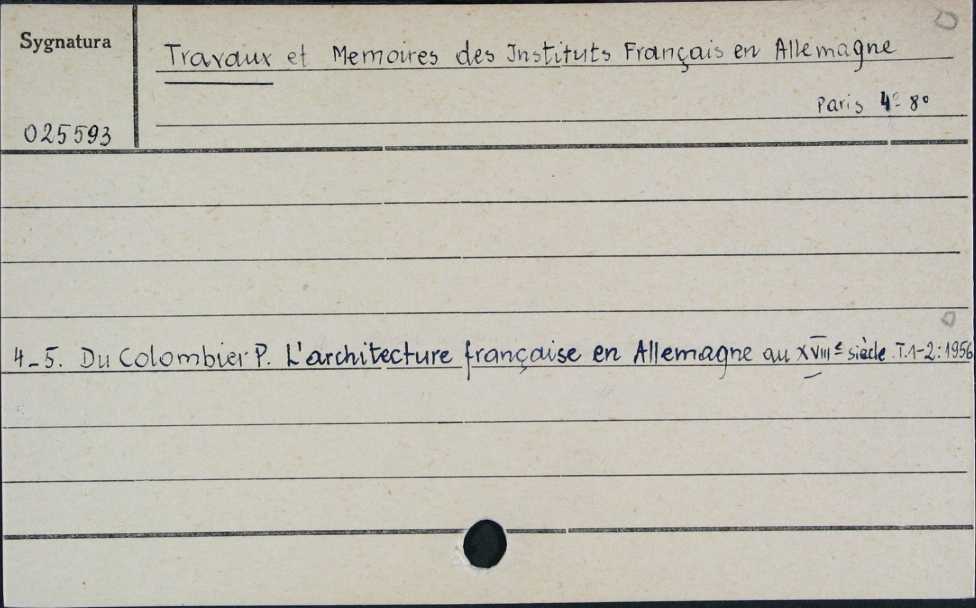 Sygnatura
Travaux et Memoires des Instituts Français en Allemagne
Paris 4º 8º
025593
4-5. Du Colombier P. L'architecture française en Allemagne au XVIIIe siècle. T.1-2: 1956